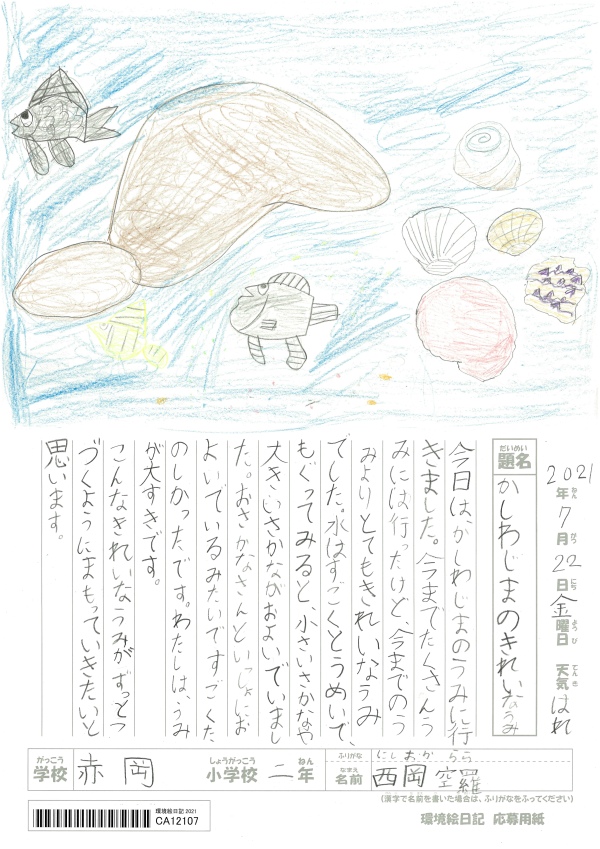 2021年7月22日金曜日 天気 はれ
ねん がつ にち ようび てんき
だいめい
題名 かしわじまのきれいなうみ
今日は、かしわじまのうみに行
きました。今までたくさんう
みには行ったけど、今までのう
みよりとてもきれいなうみ
でした。水はすごくとうめいで、
もぐってみると、小さいさかなや
大きいさかながおよいでいまし
た。おさかなさんといっしょにお
よいでいるみたいですごくた
のしかったです。わたしは、うみ
が大すきです。
こんなきれいなうみがずっとつ
づくようにまもっていきたいと
思います。
がっこう しょうがっこう ねん ふりがな にしおか らら
学校 赤岡 小学校 二年 なまえ 名前 西岡空羅
(漢字で名前を書いた場合は、ふりがなをふってください)
環境絵日記 2021
CA12107
環境絵日記 応募用紙